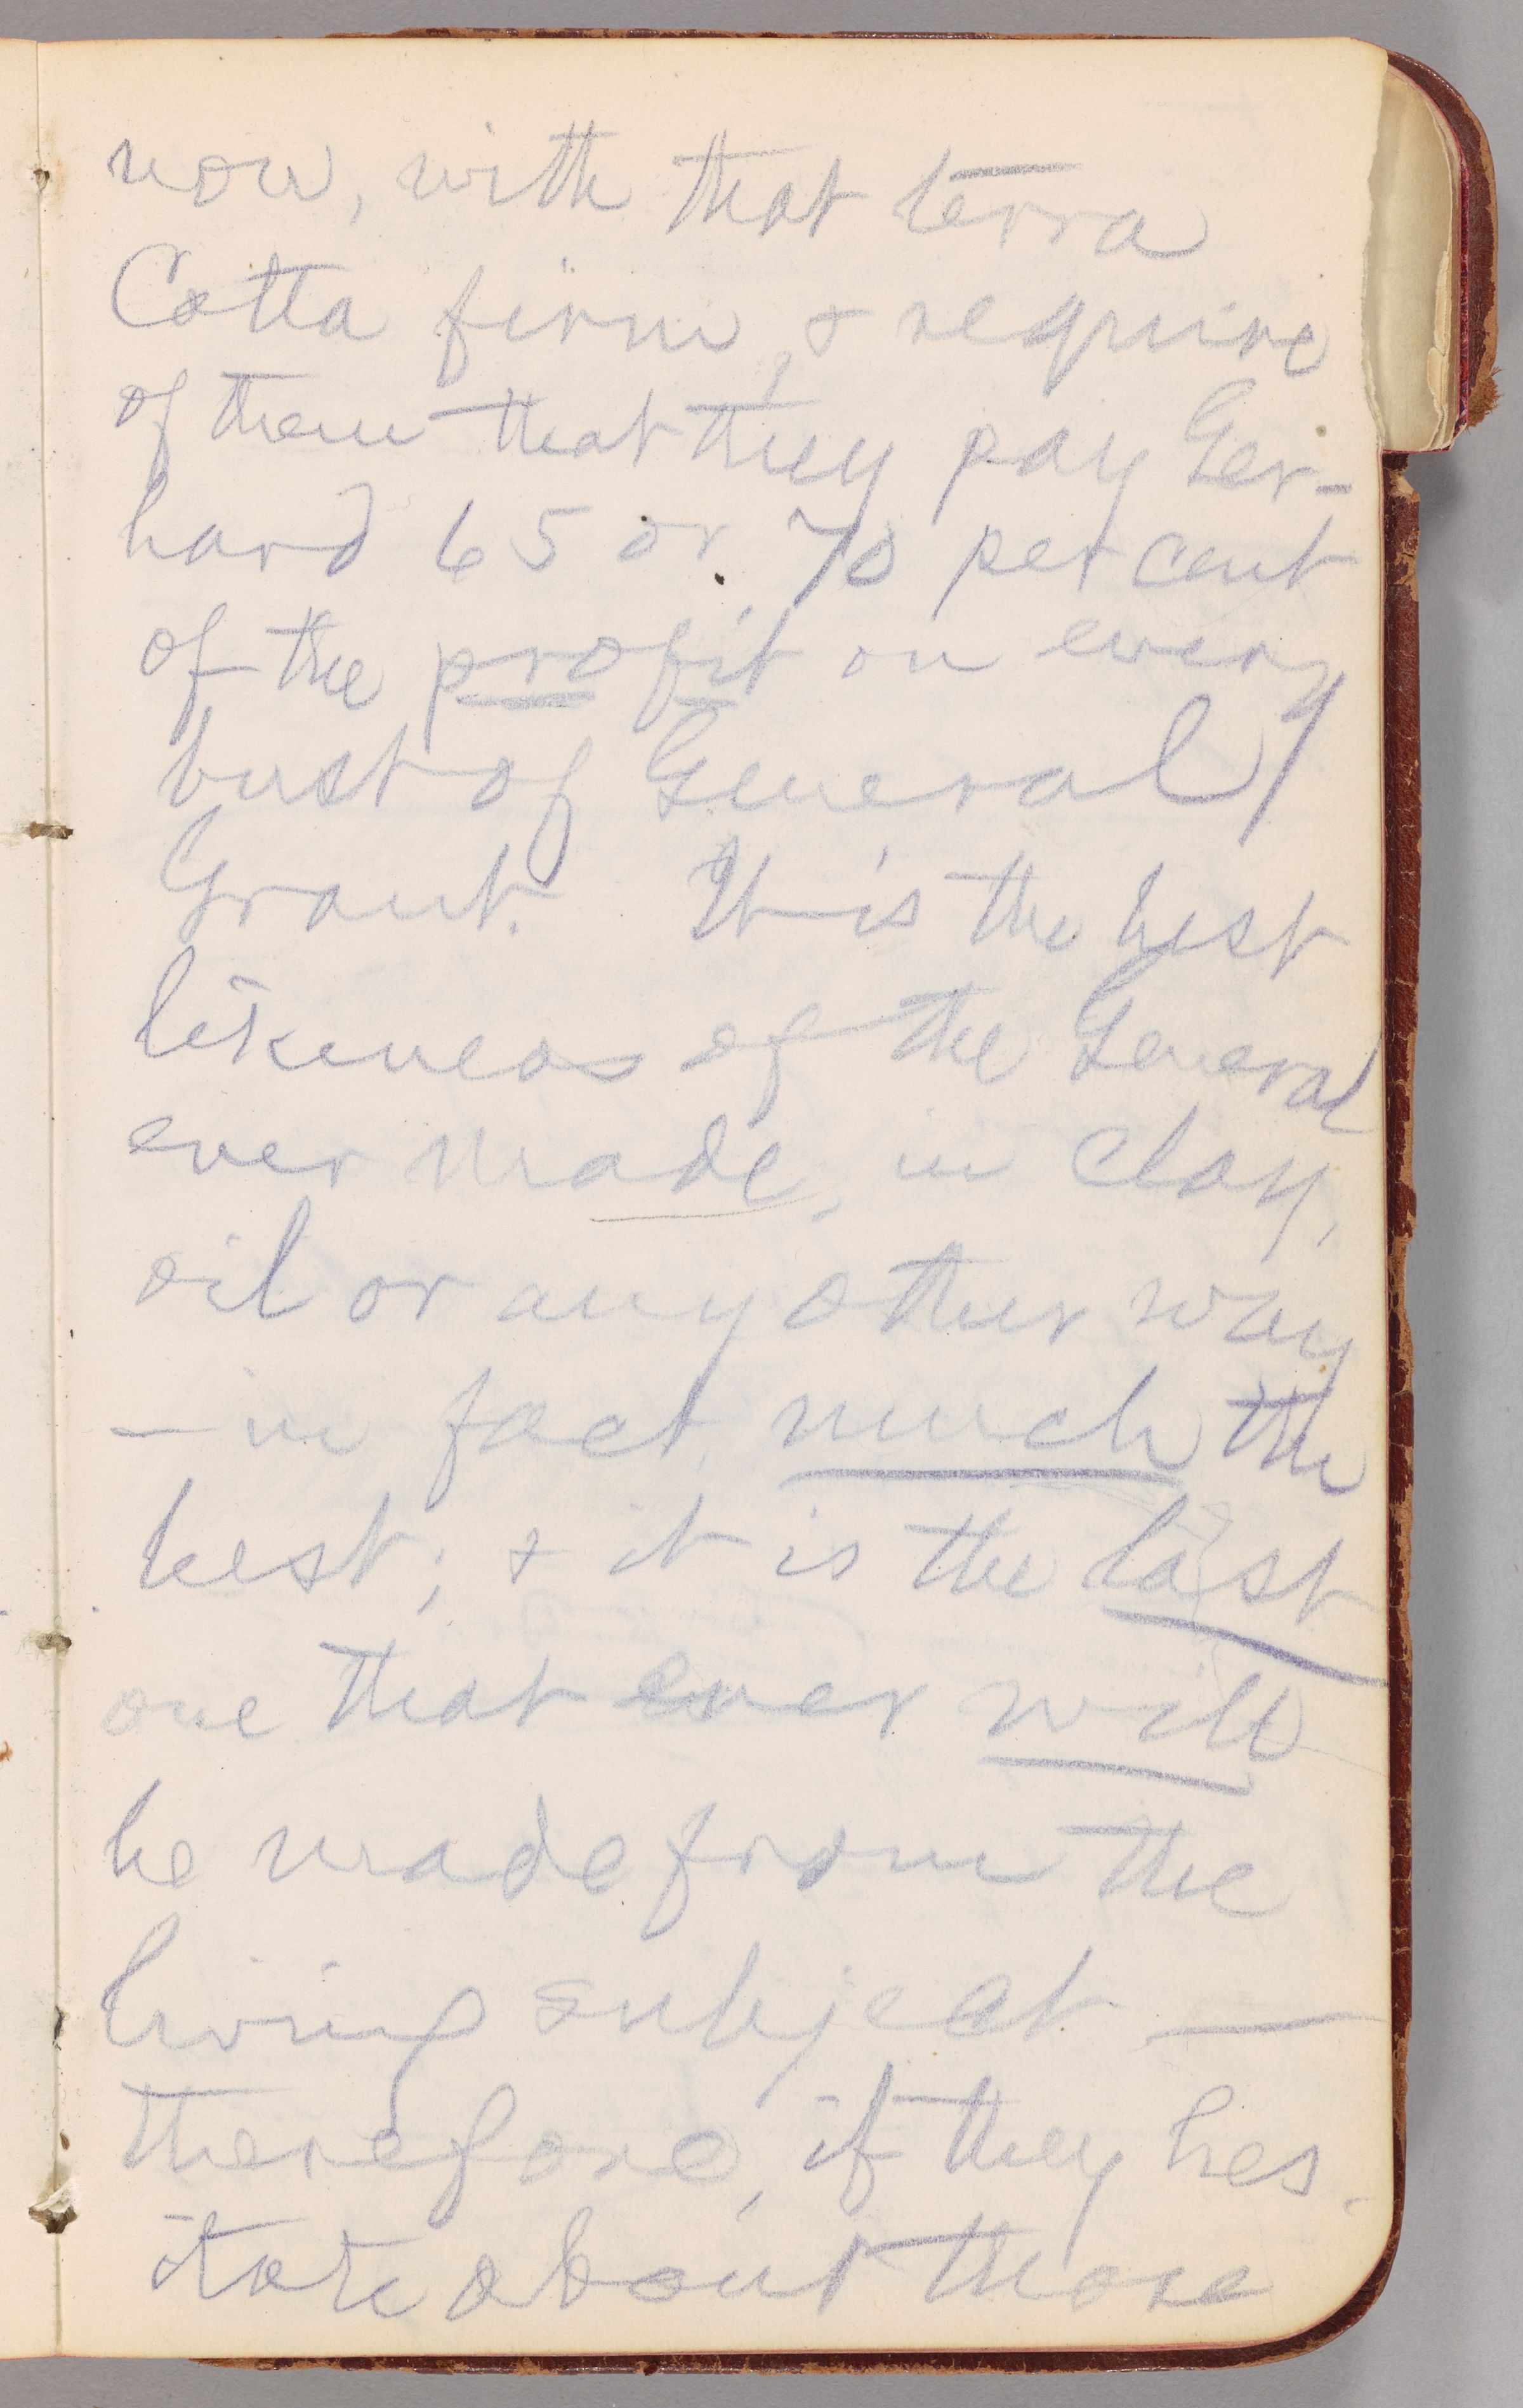 now, with that terra
Cotta firm, & require
of them that they pay Ger-
hard 65 or 70 per cent
of the profit on every
bust of General
Grant. It is the best
likeness of the General
ever made, in clay,
oil or any other way
— in fact, much the
best; & it is the last
one that ever will
be made from the
living subject —
therefore, if they hes-
itate about those